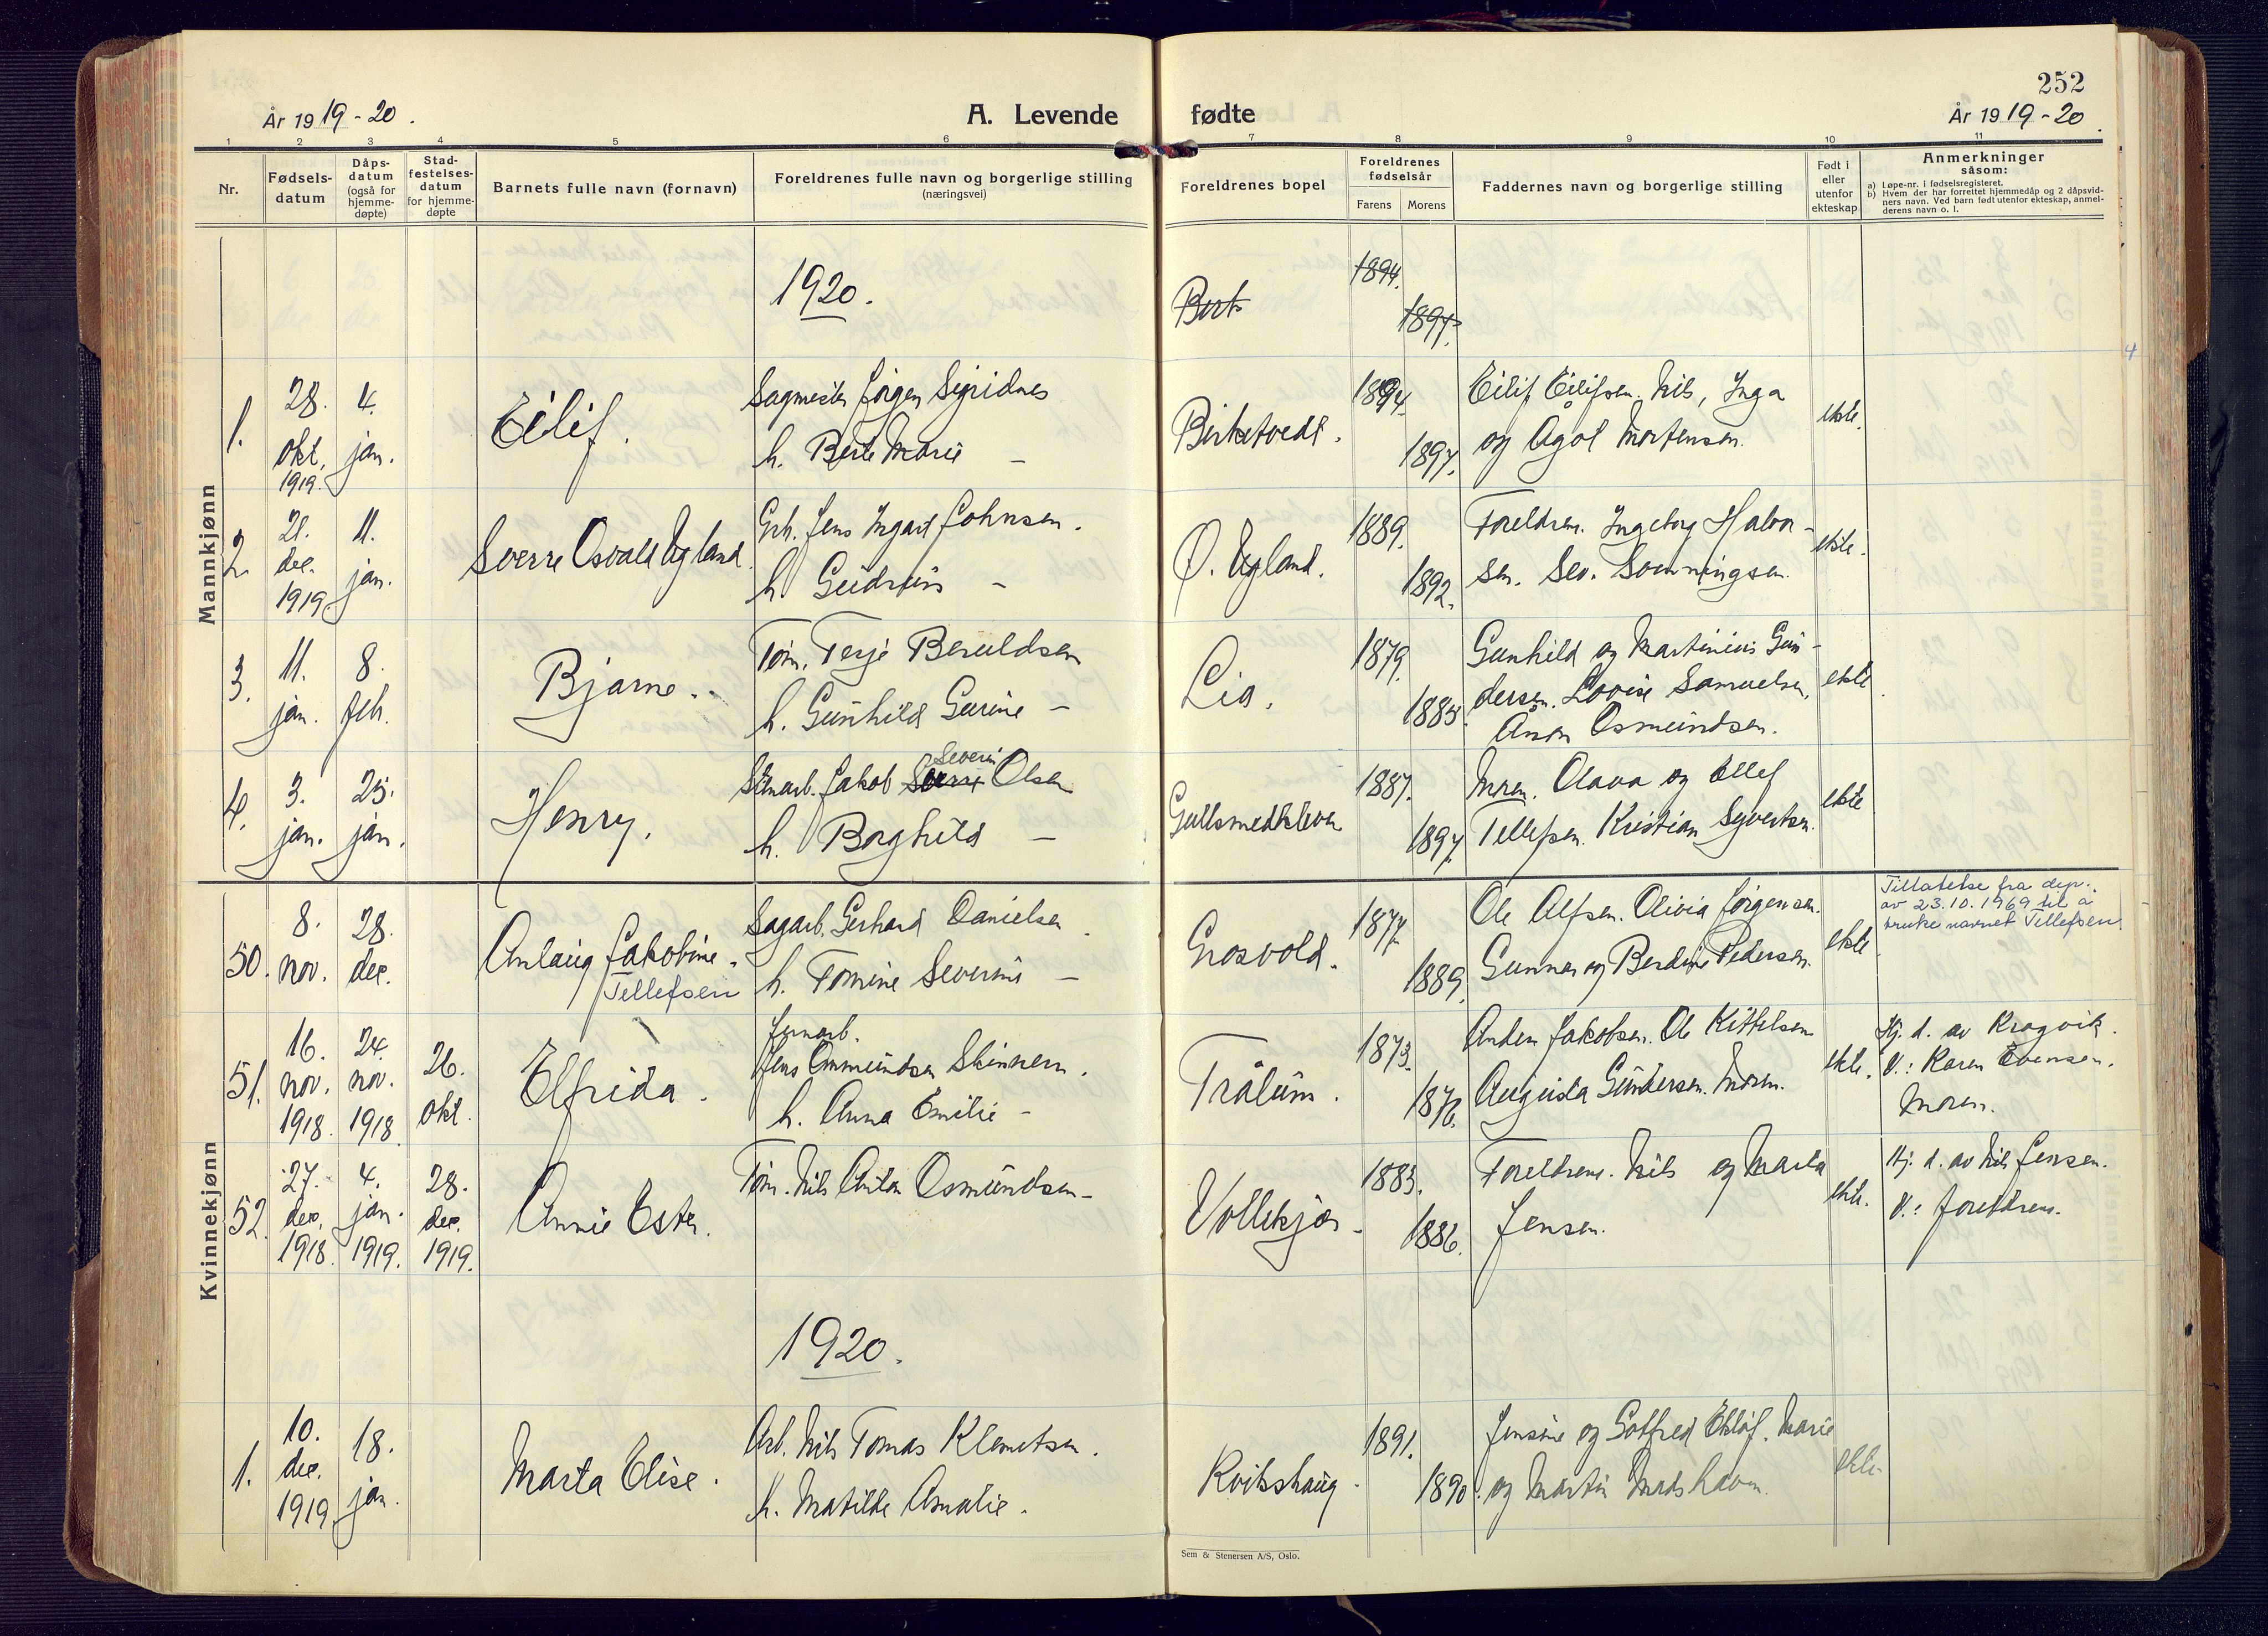 252
År 1919-20.
A. Levende fødte
År 1919-20.
1 2 3 4 5 6 7 8 9 10 11
Nr.
Fødsels-
datum
Dåps-
datum
(også for
hjemme-
døpte)
Stad-
festelses-
datum
for hjemme-
døpte
Barnets fulle navn (fornavn)
Foreldrenes fulle navn og borgerlige stilling
(næringsvei)
Foreldrenes bopel
Foreldrenes
fødselsår
Farens Morens
Faddernes navn og borgerlige stilling
Født i
eller
utenfor
ekteskap
Anmerkninger
såsom:
a) Løpe-nr. i fødselsregisteret.
b) Hvem der har forrettet hjemmedåp og 2 dåpsvid-
ners navn. Ved barn født utenfor ekteskap, anmel-
derens navn o. l.
Mannkjønn
1920.
1894.
1897.
1.
28.
okt.
1919.
4.
jan.
Eilif.
Jørgen
h. Berte Marie -
Birketvedt.
1894.
1897.
Eilif Eilifsen. Nils, Inga
og Ågot Mortensen.
ekte.
2.
21.
dec.
1919
11.
jan.
Sverre Osvald Ugland.
Grb. Jens Ingart Johnsen.
h. Gudrun -
Ø. Ugland.
1889.
1892.
Foreldren. Ingeborg Halvor-
sen. Sev. Svenningsen.
ekte.
3.
11.
jan.
8.
feb.
Bjarne.
Tøm. Terje Beruldsen
h. Gunhild Gurine -
Lia.
1879.
1885.
Gunhild og Martinius Gun-
dersen. Lovise Samuelsen,
Osmundsen.
ekte
4.
3.
jan.
25.
jan.
Henry.
Severin
Stenarb. Jakob Sverre Olsen
h. Borghild -
Gullsmedkleven
1887.
1897.
Moren. Olava og Ellef
Tellefsen. Kristian Syvertsen.
ekte
Kvinnekjønn
50.
8.
nov.
28.
dec.
Anlaug Jakobine.
Tellefsen
Sagarb. Gerhard Danielsen.
h. Tomine Severine -
Grosvold.
1877.
1889.
Ole Alfsen. Olivia Jørgensen.
Gunnar og Berdine Pedersen.
ekte
Tillatelse fra dep.
av 23.10.1969 til å
bruke navnet Tellefsen.
51.
16.
nov.
1918.
24.
nov.
1918.
26.
okt.
Elfrida.
Jernarb.
Jens Ommundsen
h. Anna Emilie -
Trålum.
1873.
1876.
Anders Jakobsen. Ole Kittelsen
Augusta Gundersen. Moren.
ekte.
Hj. d. av Kragvik.
V.: Karen Evensen.
Moren.
52.
27.
dec.
1918.
4.
jan.
1919.
28.
dec.
1919.
Annie Ester.
Tøm. Nils Anton Osmundsen -
Vollekjær -
1883.
1886.
Foreldrene. Nils og Marta
Jensen.
ekte.
Hj. d. av Nils Jensen.
V.: foreldrene.
1920.
1.
10.
dec.
1919
18.
jan.
Marta Elise.
Arb. Nils Tomas Klemetsen.
h. Matilde Amalie.
Kvitshaug.
1891.
1890.
Jensine og Gotfred Eklöf. Marie
og Martin Madshaven.
ekte.
Sem & Stenersen A/S, Oslo.